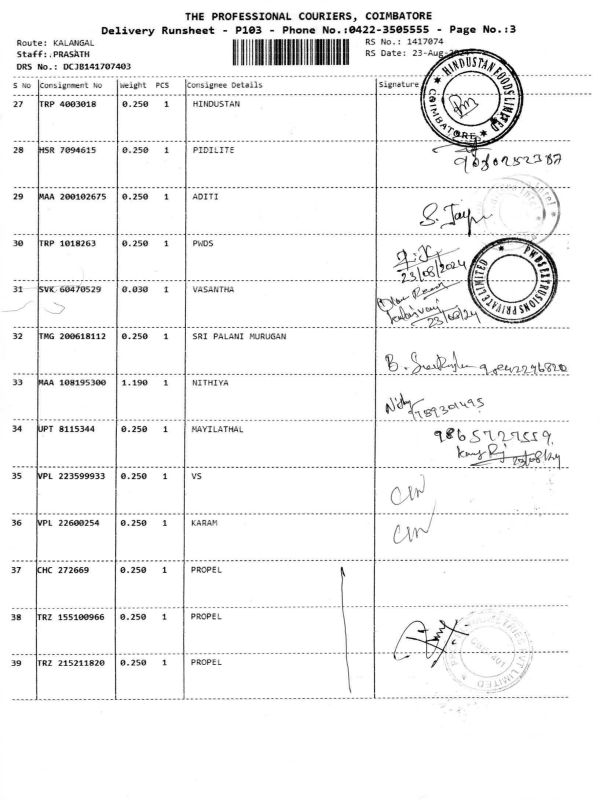 THE PROFESSIONAL COURIERS, COIMBATORE
Delivery Runsheet - P103 - Phone No.:0422-3505555 - Page No.:3
Route: KALANGAL RS No.: 1417074
Staff:.PRASATH RS Date: 23-Aug-2024
DRS No.: DCJB141707403
S No Consignment No Weight PCS Consignee Details Signature
27 TRP 4003018 0.250 1 HINDUSTAN
HINDUSTAN FOODS LIMITED
COIMBATORE
28 HSR 7094615 0.250 1 PIDILITE
29 MAA 200102675 0.250 1 ADITI
S. Jay
30 TRP 1018263 0.250 1 PWDS
23/08/2024
PRIVATE LIMITED
31 SVK 60470529 0.030 1 VASANTHA
23/08/24
32 TMG 200618112 0.250 1 SRI PALANI MURUGAN
B.
33 MAA 108195300 1.190 1 NITHIYA
34 UPT 8115344 0.250 1 MAYILATHAL
9865727559
23/08/24
35 VPL 223599933 0.250 1 VS
36 VPL 22600254 0.250 1 KARAM
37 CHC 272669 0.250 1 PROPEL
38 TRZ 155100966 0.250 1 PROPEL
39 TRZ 215211820 0.250 1 PROPEL